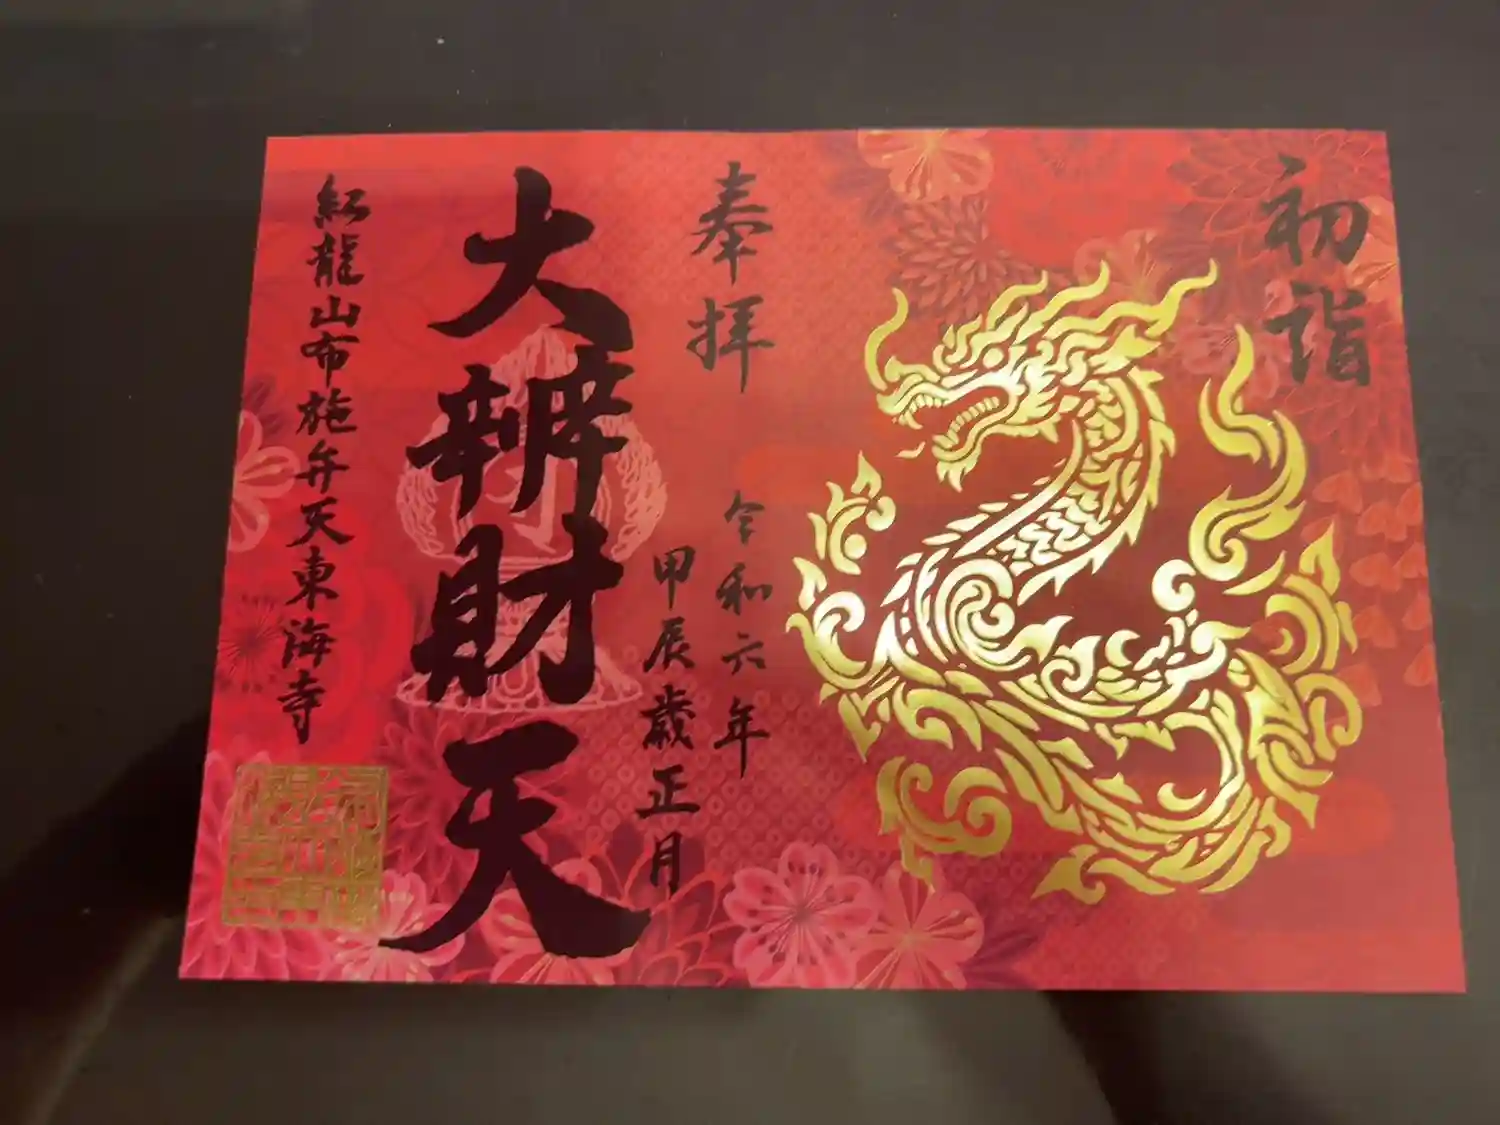 初詣
奉拝
令和六年
甲辰歳正月
大辨財天
紅龍山布施弁天東海寺